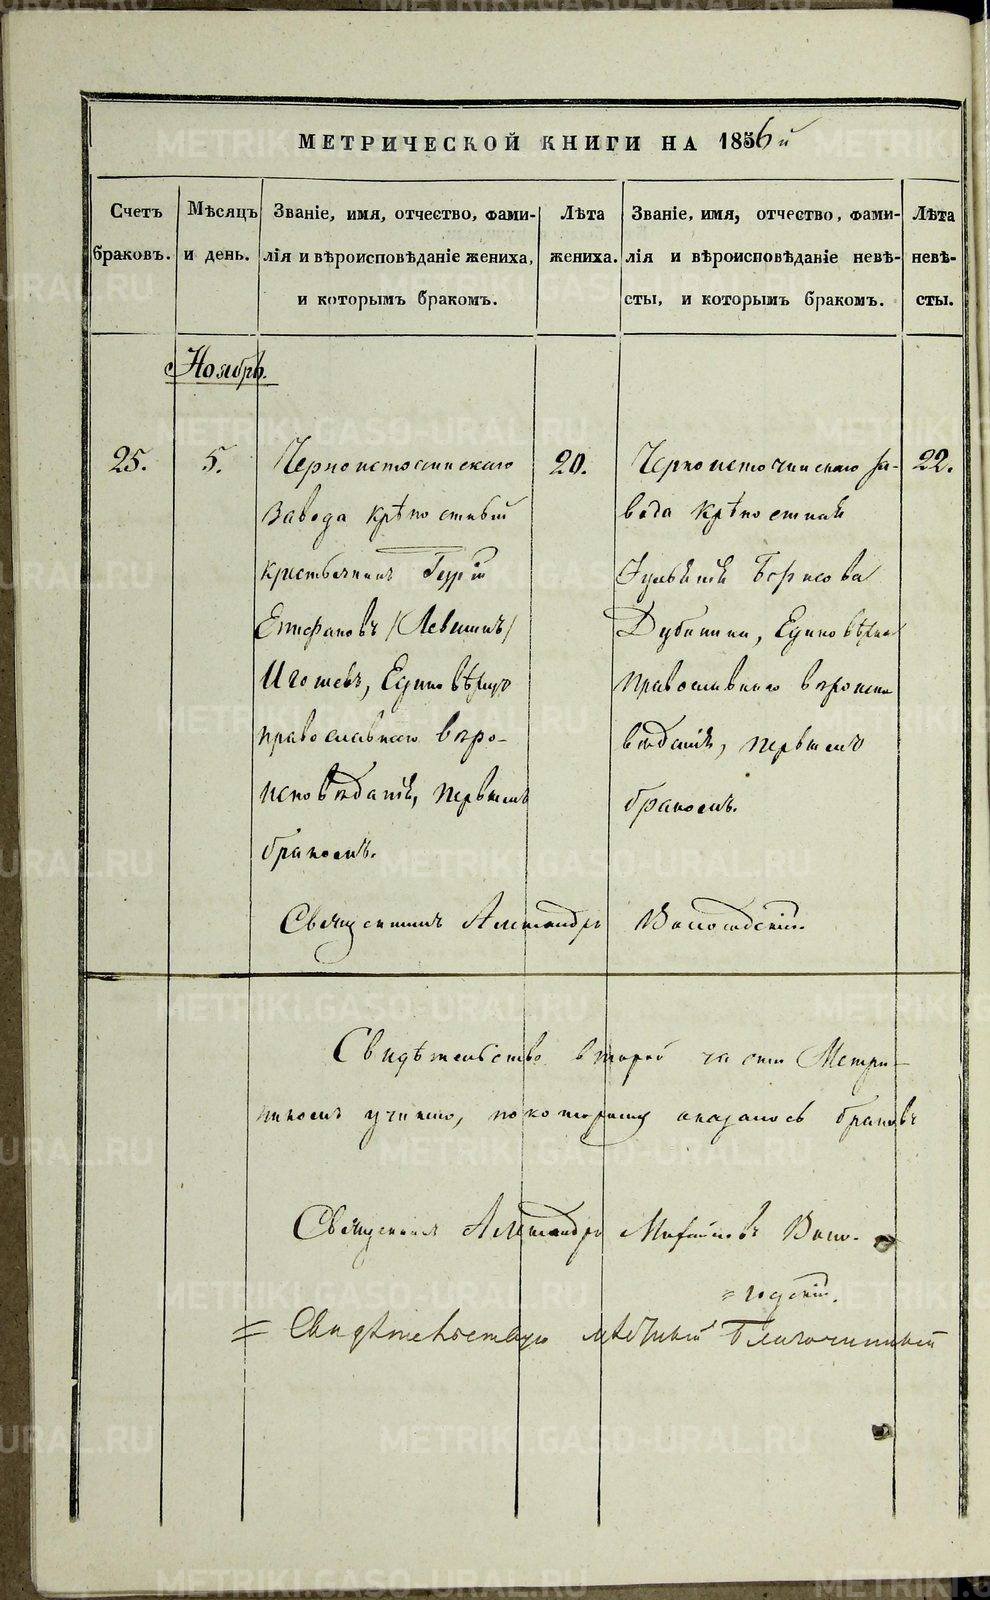 МЕТРИЧЕСКОЙ КНИГИ НА 1856й
Счетъ браковъ.
Мѣсяцъ и день.
Званіе, имя, отчество, фами-
лія и вѣроисповѣданіе жениха,
и которымъ бракомъ.
Лѣта
жениха.
Званіе, имя, отчество, фами-
лія и вѣроисповѣданіе невѣ-
сты, и которымъ бракомъ.
Лѣта
невѣ-
сты.
Ноябрь.
25.
5.
Черноисточинскаго
Завода крѣпостный
крестьянинъ Гурій
Епифановъ /Левшинъ/
Иготевъ, Единовѣрцъ
православнаго вѣро-
исповѣданія, первымъ
бракомъ.
20.
Черноисточинскаго За-
вода крѣпостная
Борисова
Дубинина, Единовѣрка
православнаго вѣроиспо
вѣданія, первымъ
бракомъ.
22.
Священникъ Александръ Вологодскій.
Свидѣтельство второй части Метри-
учинено, по которому оказалось браковъ
Священникъ Александръ Михайловъ Воло-
=годскій.
= Свидѣтельствую мѣстный Благочинный
METRIKI.GASO-URAL.RU